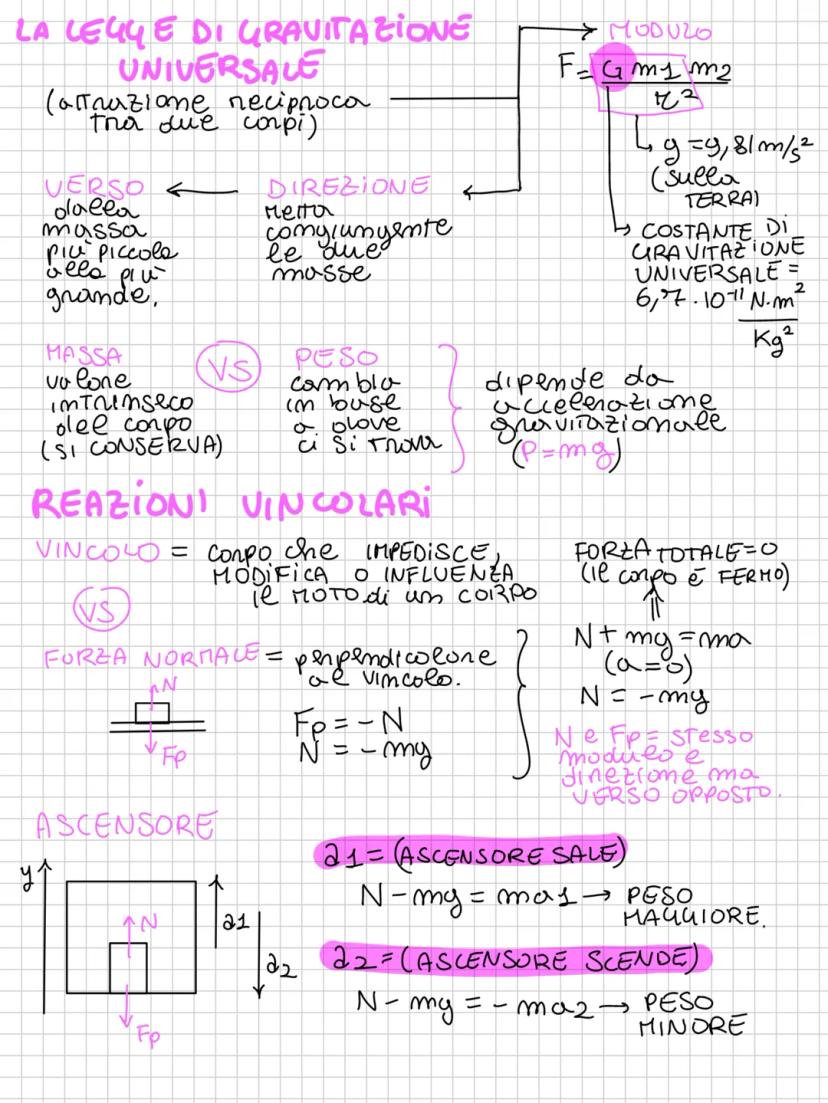 LA LEGGE DI GRAVITAZIONE
UNIVERSALE
(attrazione reciproca
tra due corpi)
MODULO
F = G m1 m2
r²
g = 9,81 m/s²
(sulla
TERRA)
COSTANTE DI
GRAVITAZIONE
UNIVERSALE =
6,7 · 10⁻¹¹ N·m²
Kg²
DIREZIONE
retta
congiungente
le due
masse
VERSO
dalla
massa
più piccola
alla più
grande.
MASSA
valore
intrinseco
del corpo
(SI CONSERVA)
VS
PESO
cambia
in base
a dove
ci si trova
dipende da
accelerazione
gravitazionale
(P=mg)
REAZIONI VINCOLARI
VINCOLO = corpo che IMPEDISCE,
MODIFICA O INFLUENZA
il MOTO di un CORPO
VS
FORZA NORMALE = perpendicolare
al vincolo.
N
Fp
Fp = - N
N = - mg
FORZA TOTALE = 0
(il corpo è FERMO)
N + mg = ma
(a=0)
N = - mg
N e Fp = stesso
modulo e
direzione ma
VERSO OPPOSTO.
ASCENSORE
y
N
Fp
a1
a2
a1 = (ASCENSORE SALE)
N - mg = ma1 → PESO
MAGGIORE.
a2 = (ASCENSORE SCENDE)
N - mg = - ma2 → PESO
MINORE